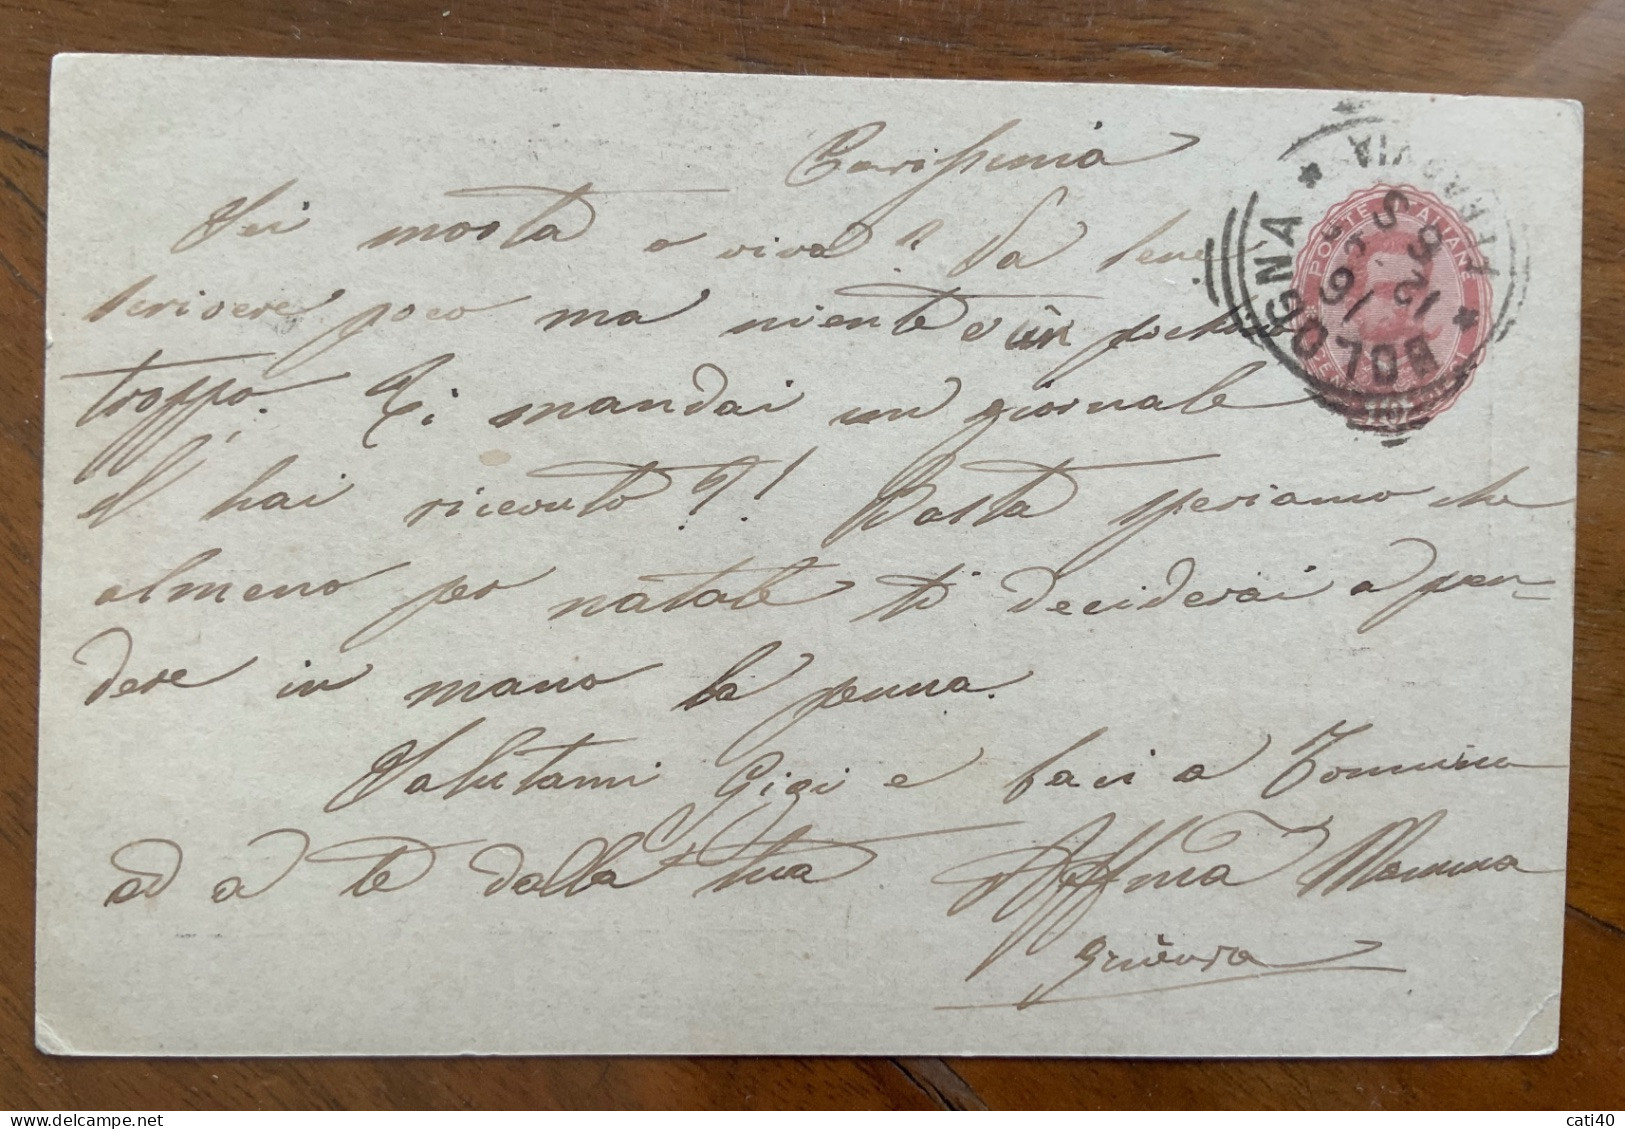 Carissima
Sei morta o viva? Va bene
scrivere poco ma niente è un poche
troppo. Ti mandai un giornale
l'hai ricevuto?! Basta speriamo che
almeno per natale ti deciderai a pren-
dere in mano la penna.
Salutami Gigi e baci a Tonnina
ad a te dalla tua Affma Mamma
Ginevra
POSTE ITALIANE
BOLOGNA
FERROVIA
12
96
cati40